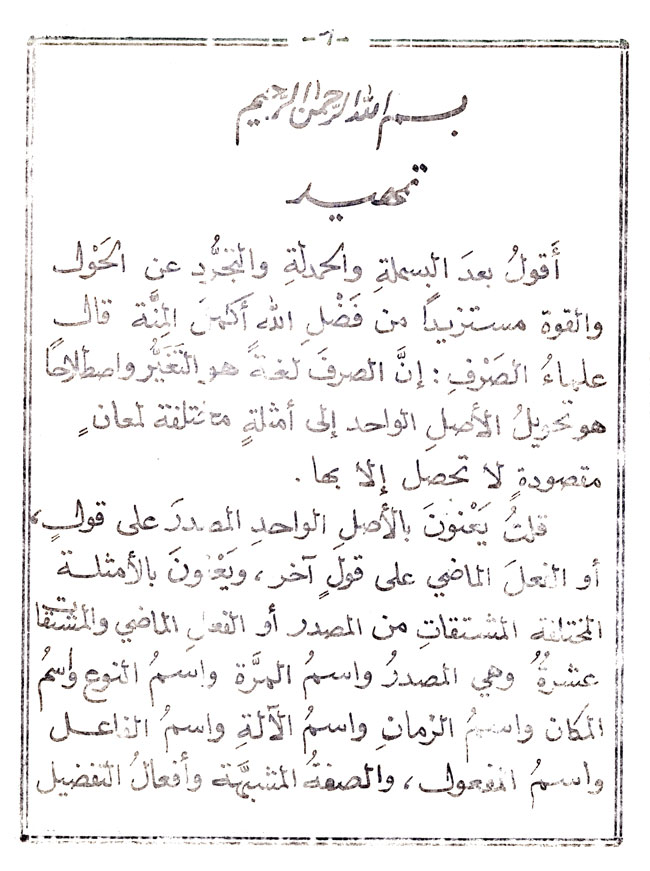 - ٦ -
بسم الله الرحمن الرحيم
تمهيد
أَقولُ بعدَ البسملةِ والحمدلةِ والتجرُّدِ عن الحَوْل
والقوة مستزيداً من فَضْلِ الله أكملَ المِنَّة قال
علماءُ الصَرْفِ : إنَّ الصرفَ لغةً هو التَغَيُّر واصطلاحًا
هو تحويلُ الأصلِ الواحد إلى أمثلةٍ مختلفة لمعانٍ
مقصودةٍ لا تحصل إلا بها .
قلتُ يَعْنونَ بالأصلِ الواحدِ المصدرَ على قولٍ،
أو الفعلَ الماضي على قولٍ آخر ، ويَعْنونَ بالأمثلة
المختلفة المشتقاتِ من المصدر أو الفعلِ الماضي والمشتقات
عشرةٌ وهي المصدرُ واسمُ المرَّة واسمُ النوع واسمُ
المكان واسمُ الزمانِ واسمُ الآلةِ واسمُ الفاعل
واسمُ المفعول ، والصفةُ المشبهَّة وأفعالُ التفضيل